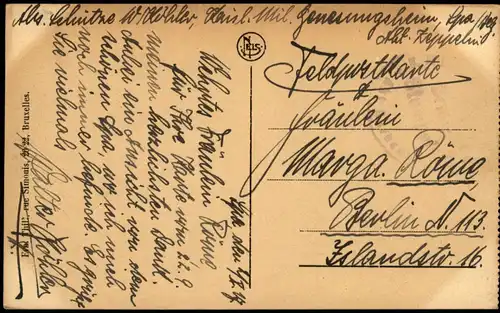 Abs. Schütze W. Köhler, Kaisl. Mil. Genesungsheim, Spa/Belg
Abt. Zeppelin
Feldpostkarte
Fräulein
Marga. Röme
Berlin N. 113.
Islandstr. 16.
Spa, den
Wertes Fräulein Röme
für Ihre Karte vom 22. 9.
meinen herzlichsten Dank.
Anbei ein Ansicht von dem
schönen Spa, wo ich mich
noch immer befinde. Es grüßt
Sie vielmals
Walter Köhler
NELS
Ed. Phil. rue Simonis, Bruxelles.